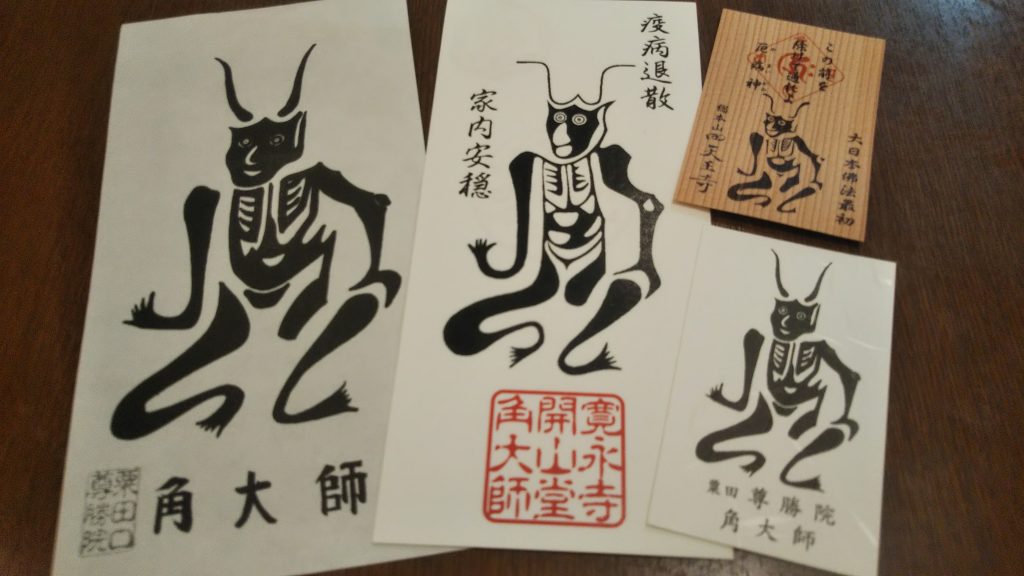 角大師
粟田口
尊勝院
疫病退散
家内安穏
寛永寺
開山堂
角大師
大日本佛法最初
この札を
厄病神
四天王寺
粟田尊勝院
角大師